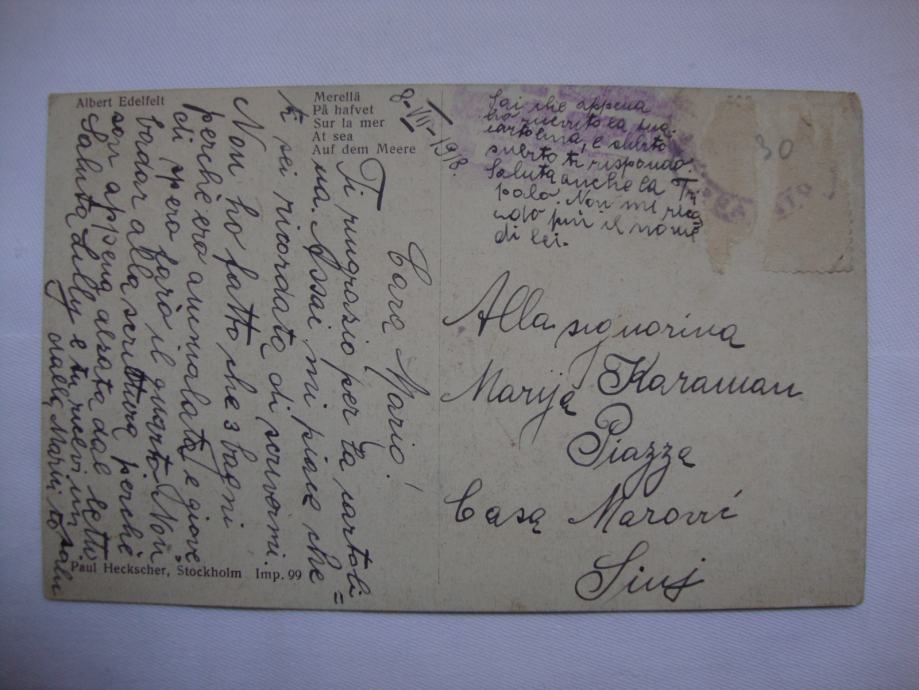 Albert Edelfelt
Merellä
På hafvet
Sur la mer
At sea
Auf dem Meere
9-VII-1918.
Cara Mario!
Ti ringrazio per la cartoli=
na. Assai mi piace che
ti sei ricordata di scrivermi.
Non ho fatto che 3 bagni
perchè ero ammalata e giove
di spero farò il quarto. Non
badar alla scrittura perchè
son appena alzata dal letto.
Saluta Lilly e tu ricevi un
dalla Marii to salu
Paul Heckscher, Stockholm Imp. 99
Sai che appena
ho ricevuto la tua
cartolina, e subito
subito ti rispondo.
Saluta anche la Tri
palo. Non mi ricor
do più il nome
di lei.
30
Alla signorina
Marija Karaman
Piazza
Casa Marović
Sinj